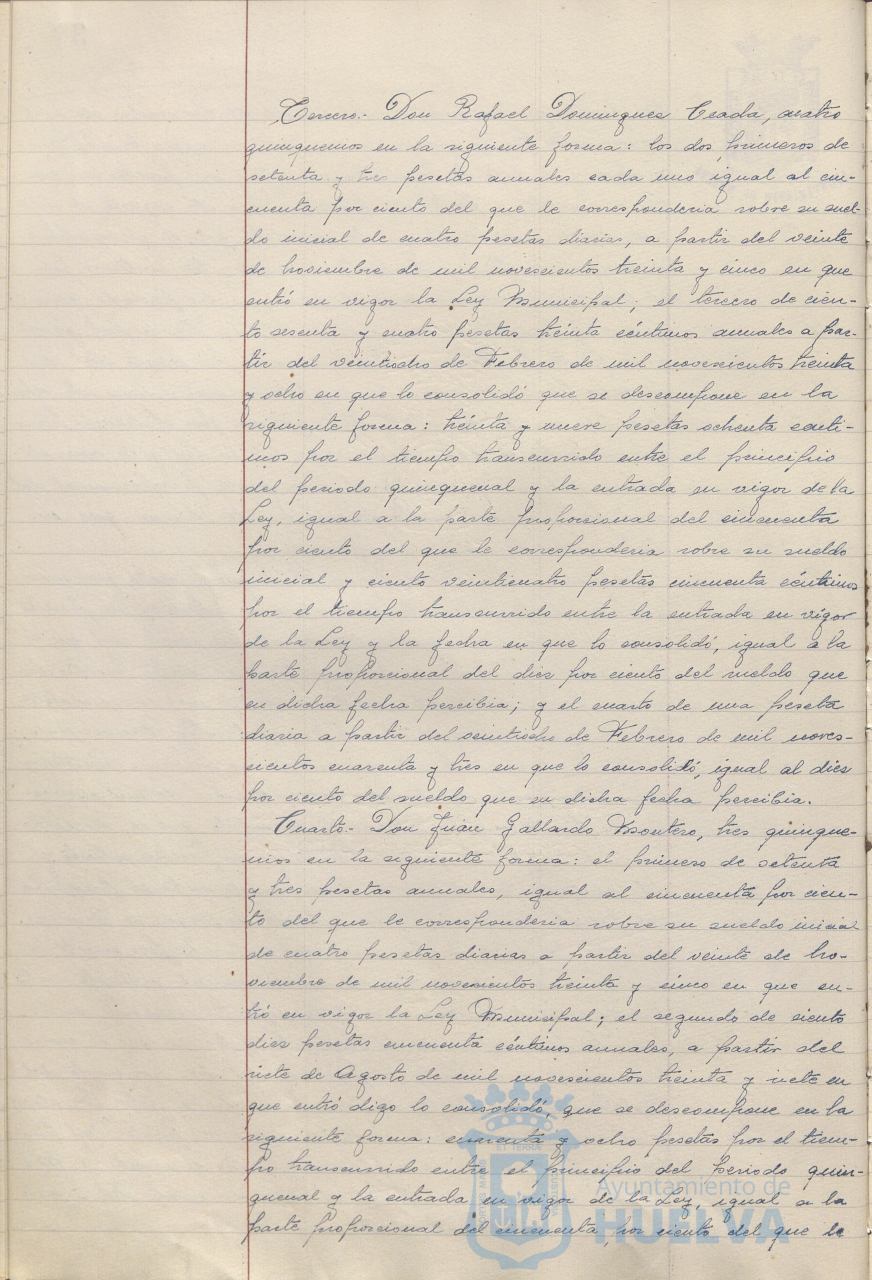 Tercero.- Don Rafael Dominguez Ceada, cuatro
quinquenios en la siguiente forma: los dos primeros de
setenta y tres pesetas anuales cada uno igual al cin-
cuenta por ciento del que le corresponderia sobre su suel-
do inicial de cuatro pesetas diarias, a partir del veinte
de Noviembre de mil novescientos treinta y cinco en que
entró en vigor la Ley Municipal; el tercero de cien-
to sesenta y cuatro pesetas treinta céntimos anuales a par-
tir del veintiocho de Febrero de mil novescientos treinta
y ocho en que lo consolidó que se descompone en la
siguiente forma: treinta y nueve pesetas ochenta centi-
mos por el tiempo transcurrido entre el principio
del periodo quinquenal y la entrada en vigor de la
Ley, igual a la parte proporcional del cincuenta
por ciento del que le corresponderia sobre su sueldo
inicial y ciento veinticuatro pesetas cincuenta céntimos
por el tiempo transcurrido entre la entrada en vigor
de la Ley y la fecha en que lo consolidó, igual a la
parte proporcional del diez por ciento del sueldo que
en dicha fecha percibia; y el cuarto de una peseta
diaria a partir del veintiocho de Febrero de mil noves-
cientos cuarenta y tres en que lo consolidó, igual al diez
por ciento del sueldo que en dicha fecha percibia.
Cuarto.- Don Juan Gallardo Montero, tres quinque-
nios en la siguiente forma: el primero de setenta
y tres pesetas anuales, igual al cincuenta por cien-
to del que le corresponderia sobre su sueldo inicial
de cuatro pesetas diarias a partir del veinte de No-
viembre de mil novescientos treinta y cinco en que en-
tró en vigor la Ley Municipal; el segundo de ciento
diez pesetas cincuenta céntimos anuales, a partir del
siete de Agosto de mil novescientos treinta y siete en
que entró digo lo consolidó, que se descompone en la
siguiente forma: cuarenta y ocho pesetas por el tiem-
po transcurrido entre el principio del periodo quin-
quenal y la entrada en vigor de la Ley, igual a la
parte proporcional del cincuenta por ciento del que le
Ayuntamiento de
HUELVA